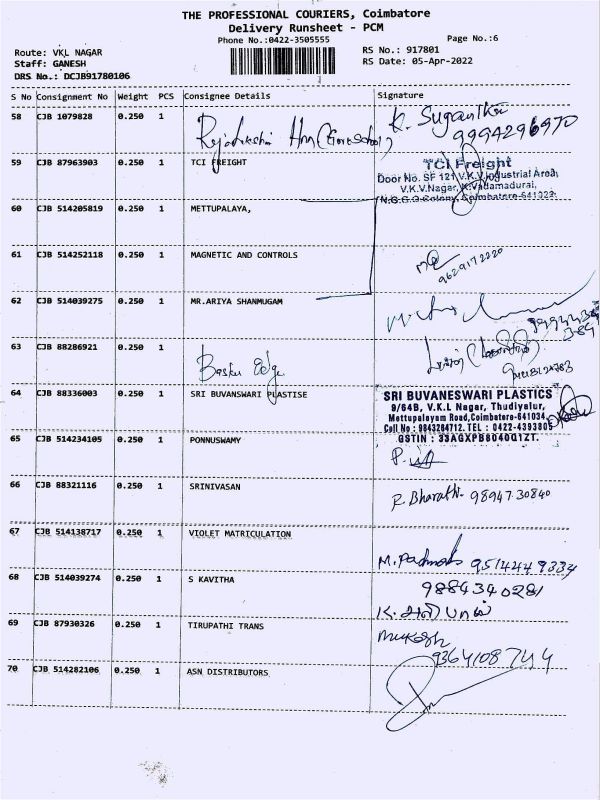 THE PROFESSIONAL COURIERS, Coimbatore
Delivery Runsheet - PCM
Phone No.:0422-3505555
Page No.:6
Route: VKL NAGAR
RS No.: 917801
Staff: GANESH
RS Date: 05-Apr-2022
DRS No.: DCJB91780106
S No Consignment No Weight PCS Consignee Details Signature
58 CJB 1079828 0.250 1 K. Sugantha
9994296970
59 CJB 87963903 0.250 1 TCI FREIGHT
TCI Freight
Door No. SF 121 V.K.V. Industrial Area,
V.K.V.Nagar, K.Vadamadurai,
N.G.G.O Colony, Coimbatore-641022
60 CJB 514205819 0.250 1 METTUPALAYA,
61 CJB 514252118 0.250 1 MAGNETIC AND CONTROLS
9629172020
62 CJB 514039275 0.250 1 MR.ARIYA SHANMUGAM
63 CJB 88286921 0.250 1
64 CJB 88336003 0.250 1 SRI BUVANSWARI PLASTISE
SRI BUVANESWARI PLASTICS
9/64B, V.K.L Nagar, Thudiyalur,
Mettupalayam Road,Coimbatore-641034
Cell No : 9843264712. TEL : 0422-4393805
GSTIN : 33AGXPB8040Q1ZT.
65 CJB 514234105 0.250 1 PONNUSWAMY
66 CJB 88321116 0.250 1 SRINIVASAN
R. Bharathi 98947 30840
67 CJB 514138717 0.250 1 VIOLET MATRICULATION
M. Padma 9514449334
68 CJB 514039274 0.250 1 S KAVITHA
9884340281
69 CJB 87930326 0.250 1 TIRUPATHI TRANS
Mukesh
9364108744
70 CJB 514282106 0.250 1 ASN DISTRIBUTORS